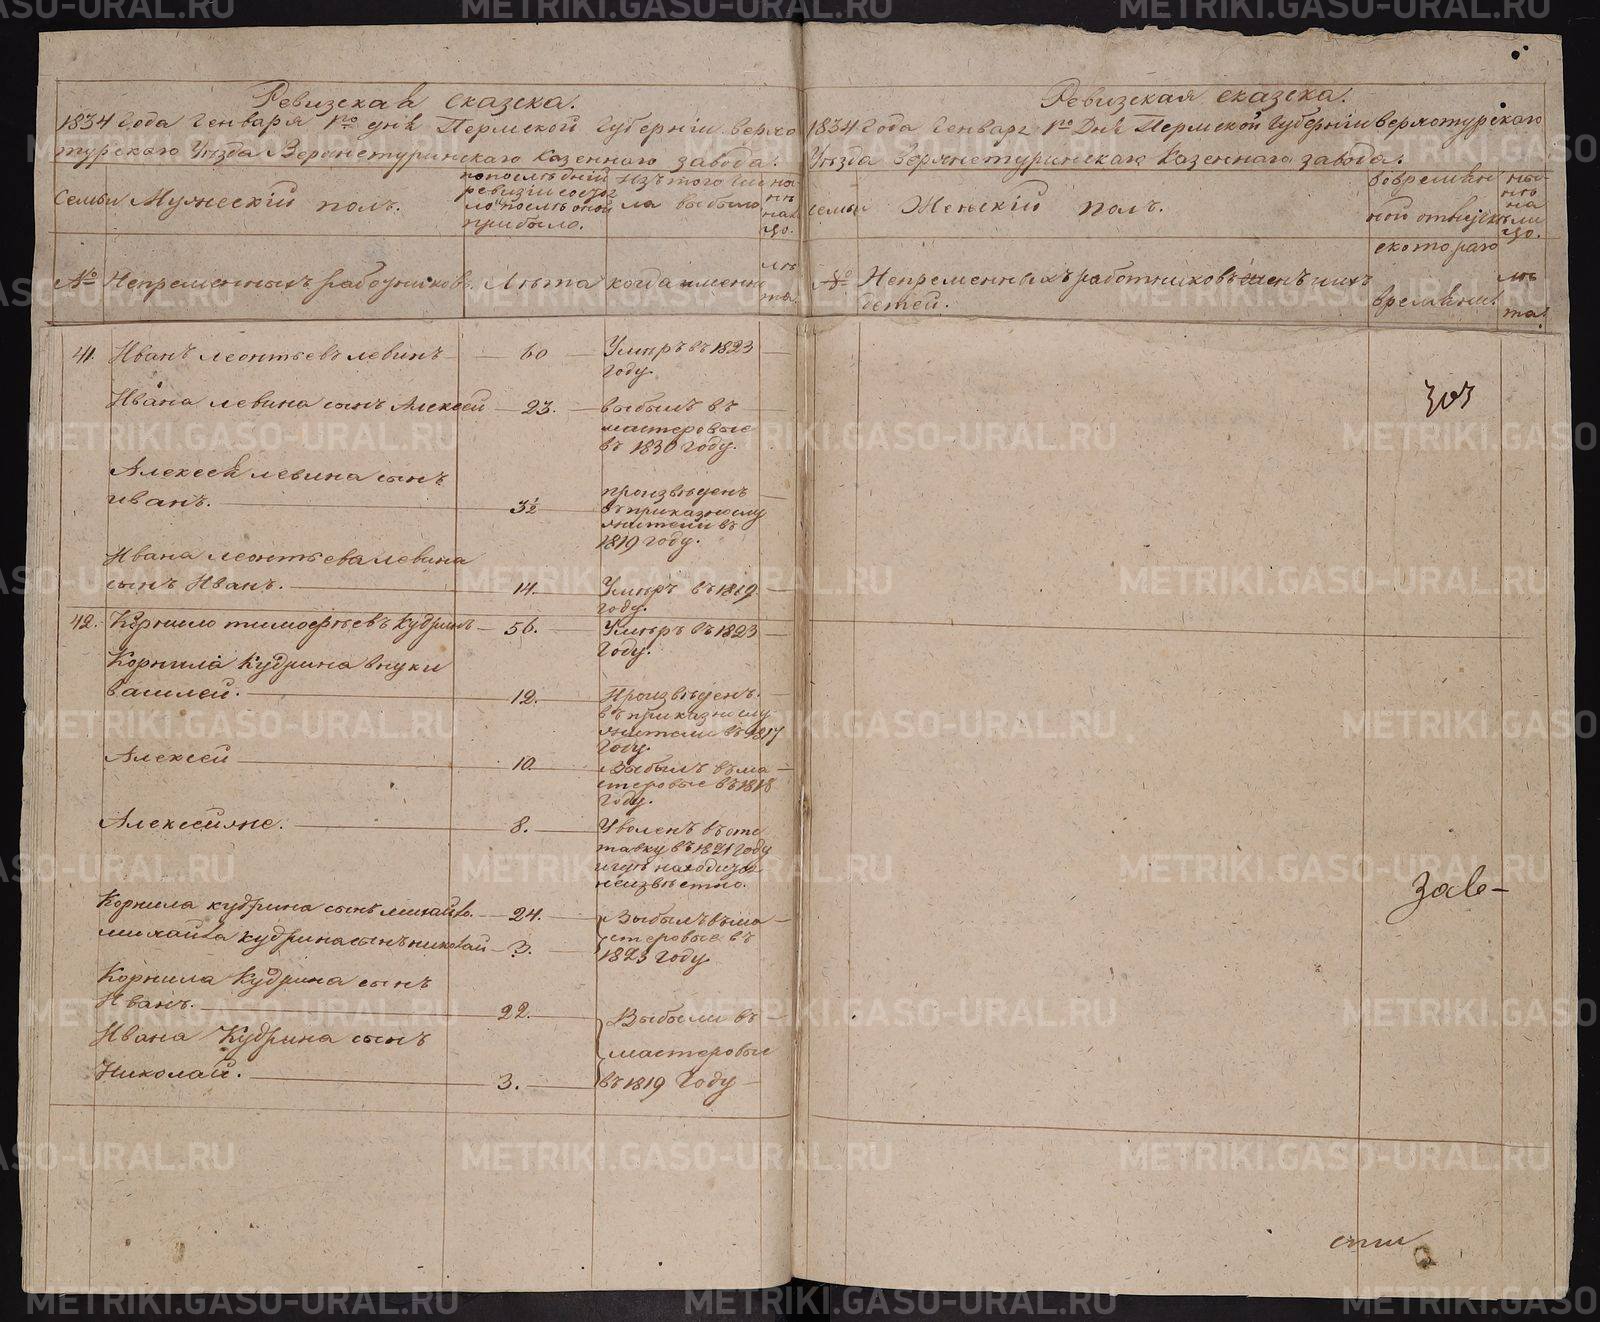 Ревизская сказска.
1834 Года Генваря 1го дня Пермской Губернiи верхо
турскаго Уѣзда Верхнетуринскаго Казеннаго завода.
Семьи Мужескiй полъ.
по последнiй
ревизiи состоя
ло и послѣ оной
прибыло.
Изъ того чис
ла выбыло
№ Непременныхъ работниковъ. Лѣта когда именно лѣ
та.
41. Иванъ леонтьевъ левинъ 60 Умѣръ въ 1823
году.
Ивана левина сынъ Алексей 23. выбылъ въ
мастеровые
въ 1830 году.
Алексея левина сынъ
иванъ. 3½ произвѣденъ
въ приказнослу
жители въ
1819 году.
Ивана леонтьева левина
сынъ Иванъ. 14. Умѣръ въ 1819
году.
42. Корнило тимофѣевъ Кудринъ 56. Умѣръ въ 1823
Году.
Корнила Кудрина внуки
василей. 12. Произвѣденъ
въ приказнослу
жители въ 1817
Году.
Алексей 10. Выбылъ въ ма
стеровые въ 1818
Году.
Алексейже. 8. Уволенъ въ от
тавку въ 1821 Году
и гдѣ находица
неизвѣстно.
Корнила кудрина сынъ михайло. 24. Выбылъ въ ма
михайла кудрина сынъ николай 3. стеровые въ
1823 Году
Корнила Кудрина сынъ
Иванъ. 22. Выбыли въ
Ивана Кудрина сынъ
мастеровые
Николай. 3. въ 1819 Году
Ревизская сказска.
1834 Года Генваря 1го Дня Пермской Губернiи верхотурскаго
Уѣзда верхнетуринскаго Казеннаго завода.
семьи Женскiй полъ.
во времян
ной отлучкѣ
с котораго
времяни.
ны
нѣ
на
ли
цо.
лѣ
та.
№ Непременныхъ работниковъ женъ и ихъ
детей.
303
METRIKI.GASO-URAL.RU